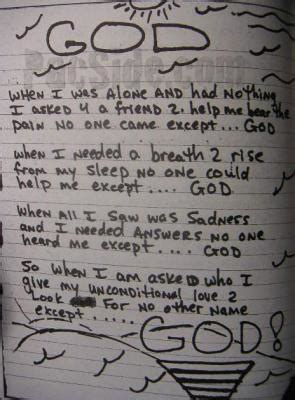 GOD
PacSide.com
WHEN I WAS ALONE AND HAD NOTHING
I ASKED 4 A FRIEND 2 HELP ME BEAR THE
PAIN NO ONE CAME EXCEPT... GOD
WHEN I NEEDED A BREATH 2 RISE
FROM MY SLEEP NO ONE COULD
HELP ME EXCEPT.... GOD
WHEN ALL I SAW WAS SADNESS
AND I NEEDED ANSWERS NO ONE
HEARD ME EXCEPT.... GOD
SO WHEN I AM ASKED WHO I
GIVE MY UNCONDITIONAL LOVE 2
LOOK FOR NO OTHER NAME
EXCEPT.....
GOD!